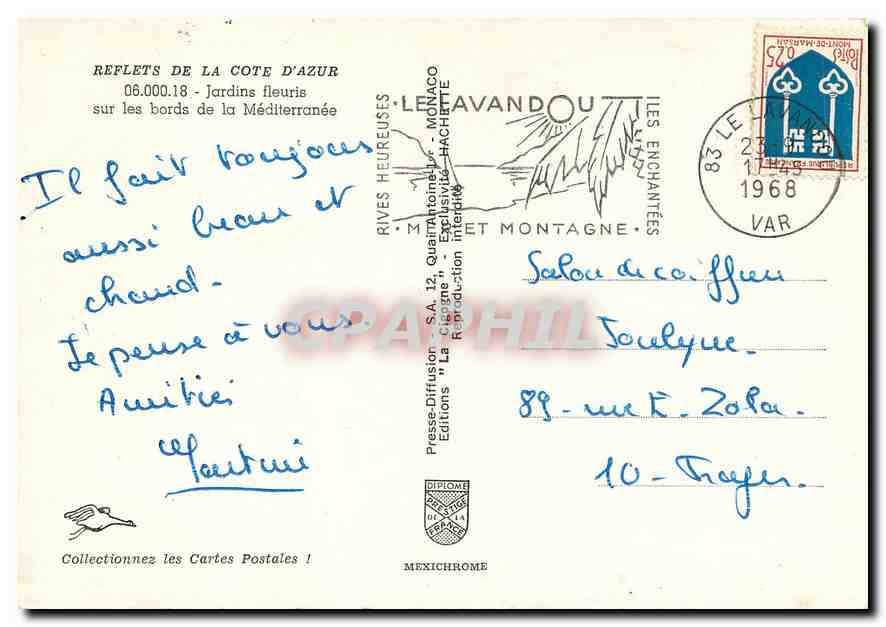 REFLETS DE LA COTE D'AZUR
06.000.18 - Jardins fleuris
sur les bords de la Méditerranée
Il fait toujours
aussi beau et
chaud.
Je pense à vous.
Amitiés
Martine
Collectionnez les Cartes Postales !
RIVES HEUREUSES
·LE LAVANDOU
ILES ENCHANTÉES
· MER ET MONTAGNE ·
Presse-Diffusion S.A. 12, Quai Antoine-1er - MONACO
Editions "La Cigogne" - Exclusivité HACHETTE
Reproduction interdite
DIPLOME
PRESTIGE
DE LA
FRANCE
MEXICHROME
0,25
Postes
MONT-DE-MARSAN
83 LE LAVAN
23-9
17H45
1968
VAR
Salon de coiffure
89 - rue E. Zola.
10 - Troyes.
CPAPHIL